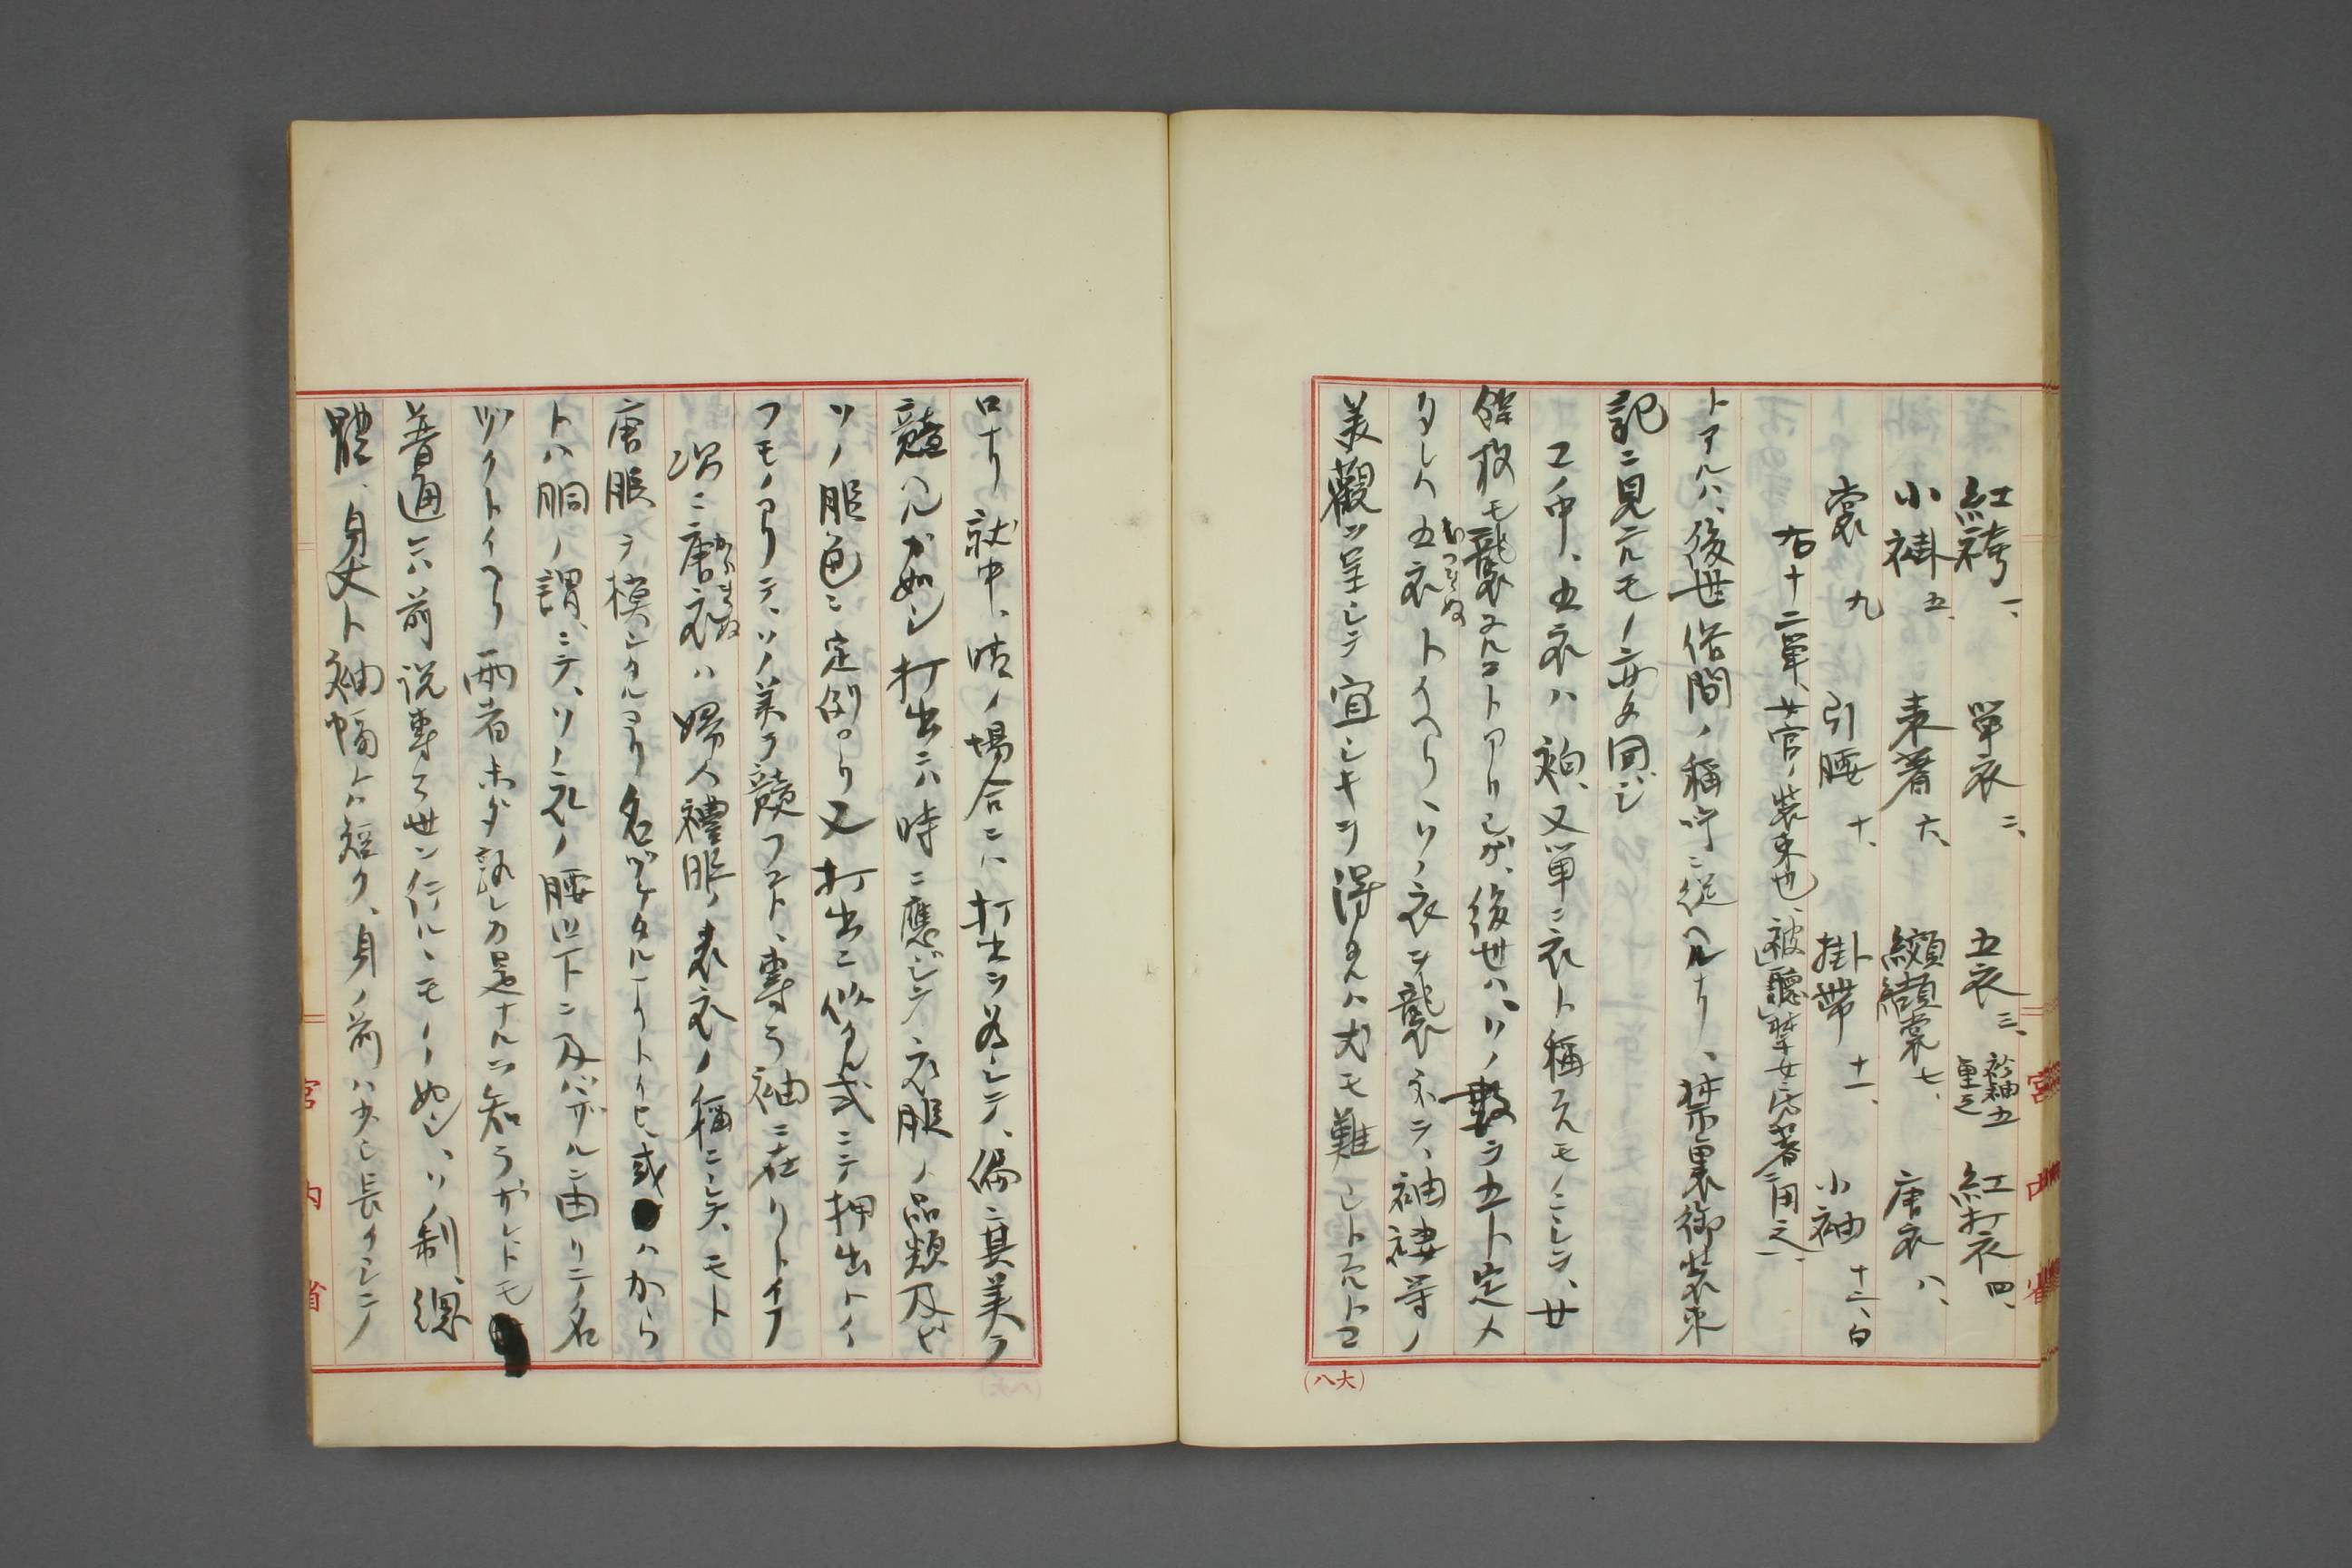 紅袴一、 單衣二、 五衣三、袗袖五重之 紅打衣四、
小袿五、 表著六、 纐纈裳七、 唐衣八、
裳九 引腰十、 掛帶十一、 小袖十二、白
右十二單、女官ノ裝束也、被聽禁女房著用之、
トアルハ、後世俗間ノ稱呼ニ從ヘルナリ、禁裏御裝束
記ニ見エルモノ亦同ジ
コノ中、五衣ハ袙、又單ニ衣ト稱スルモノニシテ、廿
餘枚モ襲ヌルコトアリシガ、後世ハ、ソノ數ヲ五ト定メ
タレバ五衣トイヘリ、ソノ衣ヲ襲ネテ、袖褄等ノ
いつゝぎぬ
美觀ヲ呈シテ宜シキヲ得タルハ尤モ難シトスルトコ
(八大)
ロナリ就中、晴ノ場合ニハ打出ヲ為シテ、偏ニ其美ヲ
競ヘルガ如シ打出ニハ時ニ應ジテ、衣服ノ品類及ビ
ソノ服色ニ定例アリ又打出ニ似タル式ニテ押出トイ
フモノアリテ、ソノ美ヲ競フコト、專ラ袖ニ在リトイフ
次ニ唐衣ハ婦人禮服ノ表衣ノ稱ニシテ、モト
からぎぬ
唐服ヲ模シタルヨリ名ヅケタルナリトイヒ、或ハから
トハ胴ノ謂ニテ、ソノ衣ノ腰以下ニ及バザルニ由リテ名
ヅクトイヘリ兩者未ダ孰レカ是ナルヲ知ラザレドモ
普通ニハ前說專ラ世ニ行ハルヽモノヽ如シ、ソノ制、總
體、身丈ト袖幅トハ短ク、身ノ前ハ少シ長クシテ
宮内省
宮内省